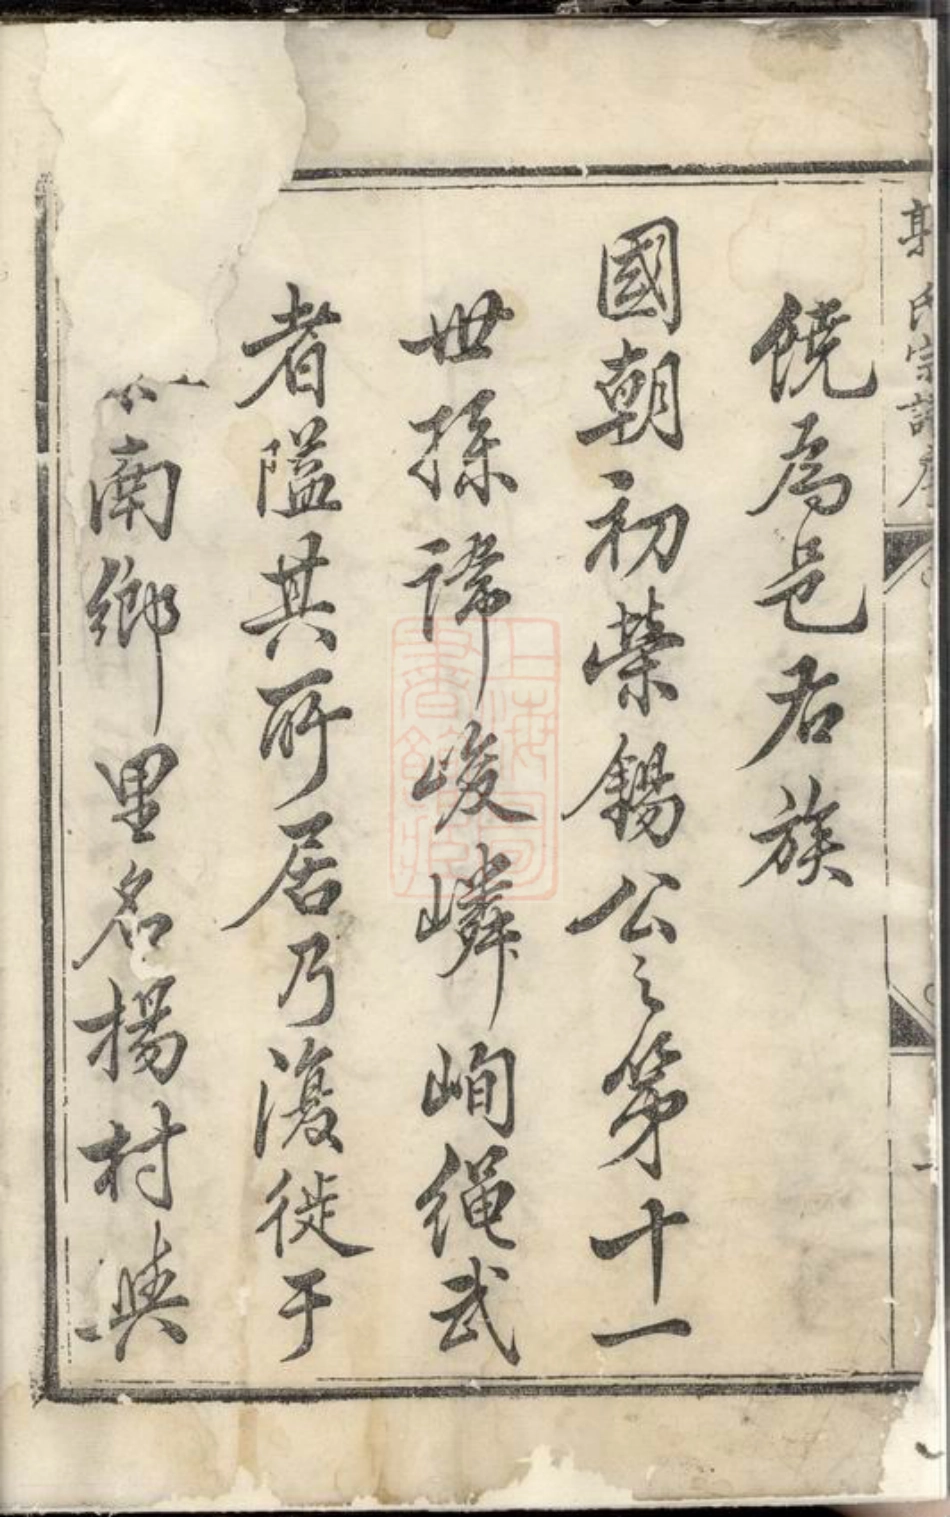 氏宗譜序
饒為邑右族
國朝初榮錫公之第十一
世孫諱峻嶙峋繩武
者隘其所居乃復徙于
南鄉里名楊村與
上海圖書館藏